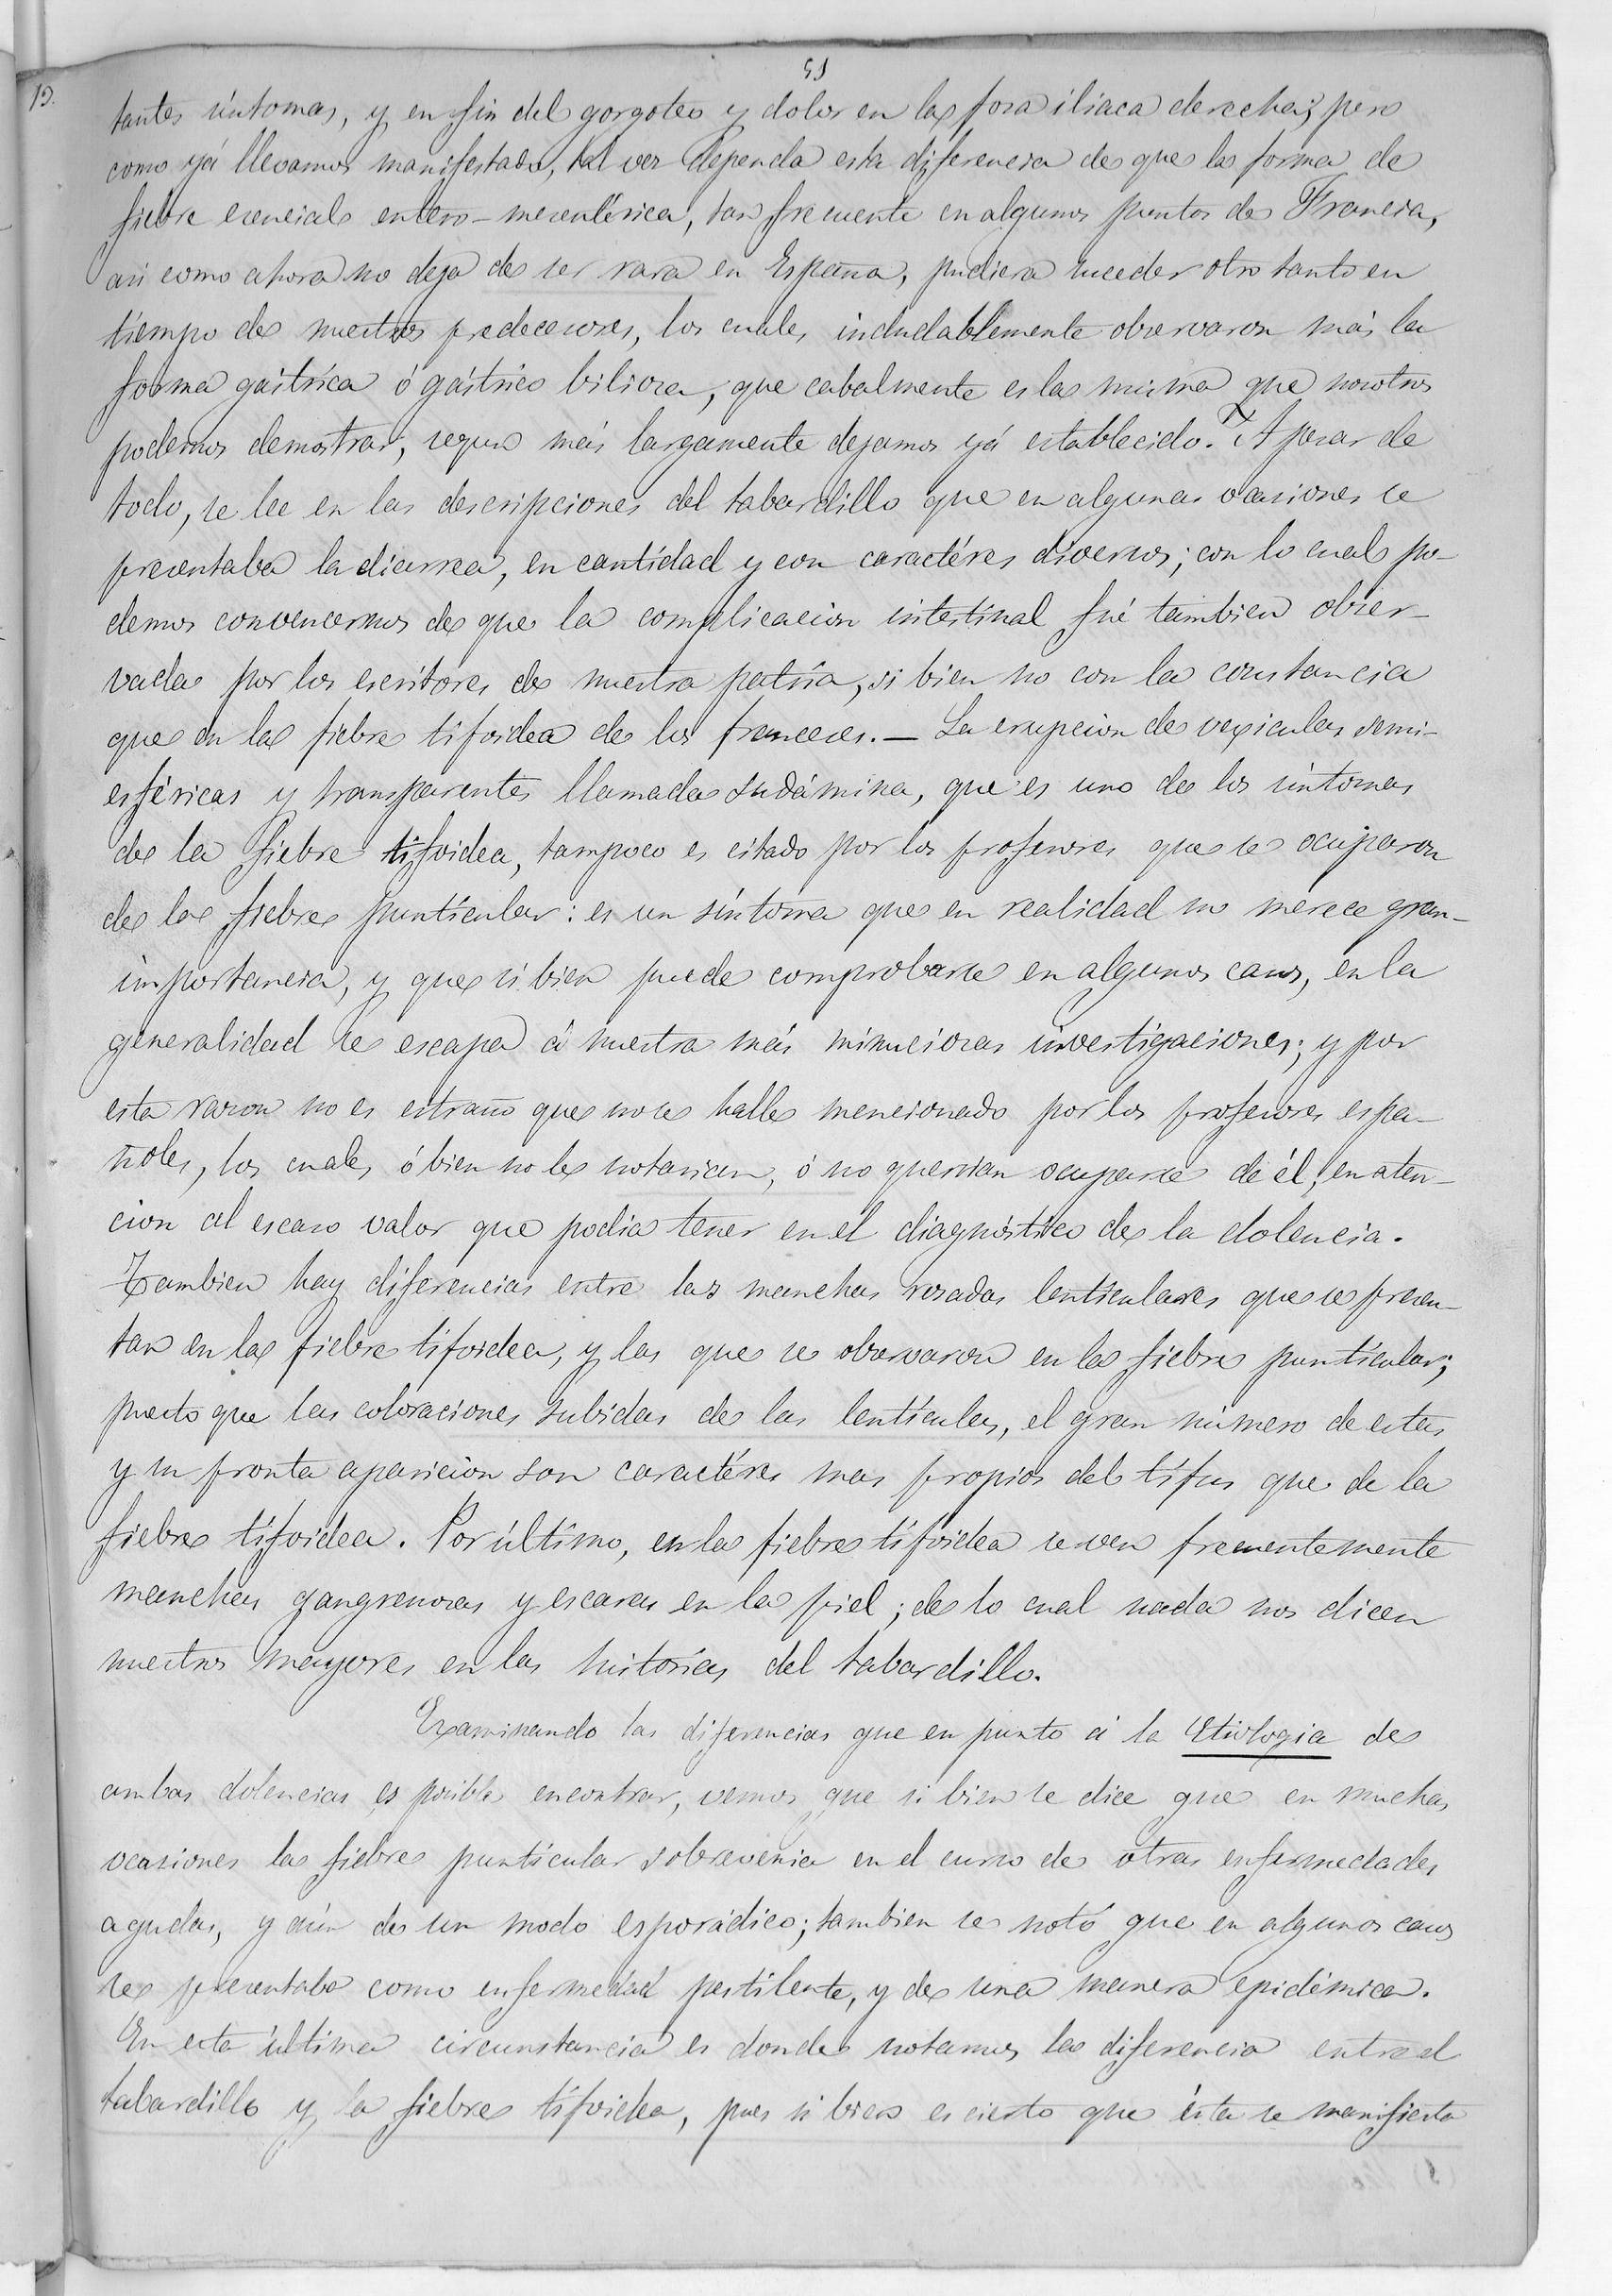 51
13.
tantes síntomas, y en fin del gorgoteo y dolor en la fosa iliaca derecha; pero
como yá llevamos manifestado, tal vez dependa esta diferencia de que la forma de
fiebre esencial entero-mesentérica, tan frecuente en algunos puntos de Francia,
asi como ahora no deja de ser rara en España, pudiera suceder otro tanto en
tiempo de nuestros predecesores, los cuales indudablemente observaron más la
forma gástrica ó gástrico biliosa, que cabalmente es la misma que nosotros
podemos demostrar, segun más largamente dejamos yá establecido. A pesar de
todo, se lee en las descripciones del tabardillo que en algunas ocasiones se
presentaba la diarrea, en cantidad y con caractéres diversos; con lo cual po-
demos convencernos de que la complicacion intestinal fué tambien obser-
vada por los escritores de nuestra patria, si bien no con la constancia
que en la fiebre tifoidea de los franceses. — La erupcion de vexiculas semi-
esféricas y transparentes llamada sudámina, que es uno de los síntomas
de la fiebre tifoidea, tampoco es citado por los profesores que se ocuparon
de la fiebre puntícular: es un síntoma que en realidad no merece gran-
importancia, y que si bien puede comprobarse en algunos casos, en la
generalidad se escapa á nuestra más minuciosas investigaciones; y por
esta razon no es estraño que no se halle mencionado por los profesores espa-
ñoles, los cuales, ó bien no le notarian, ó no querrian ocuparse de él, en aten-
cion al escaso valor que podia tener en el diagnóstico de la dolencia.
Tambien hay diferencias entre las manchas rosadas lenticulares que se presen-
tan en la fiebre tifoidea, y las que se observaron en la fiebre puntícular;
puesto que las coloraciones subidas de las lentículas, el gran número de estas
y su pronta aparicion son caractéres mas propios del tífus que de la
fiebre tifoidea. Por último, en la fiebre tifoidea se ven frecuentemente
manchas gangrenosas y escaras en la piel; de lo cual nada nos dicen
nuestros mayores en las historias del tabardillo.
Examinando las diferencias que en punto á la Etiologia de
ambas dolencias es posible encontrar, vemos que si bien se dice que en muchas
ocasiones la fiebre puntícular sobrevenia en el curso de otras enfermedades
agudas, y aún de un modo esporádico; tambien se notó que en algunos casos
se presentaba como enfermedad pestilente, y de una manera epidémica.
En esta última circunstancia es donde notamos la diferencia entre el
tabardillo y la fiebre tifoidea, pues si bien es cierto que ésta se manifiesta